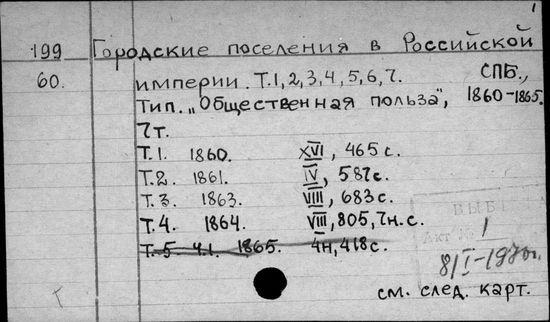 1
199 Городские поселения в Российской
60. империи. Т.1,2,3,4,5,6,7. СПБ.,
Тип. „Общественная польза", 1860-1865.
7т.
Т.1. 1860. XVI, 465 с.
Т.2. 1861. IV, 587 с.
Т.3. 1863. VIII, 683 с.
Т.4. 1864. VIII, 805, 7н. с.
Т.5 ч.1. 1865. 4н, 418 с.
Акт № 1
8/I-1970г.
см. след. карт.